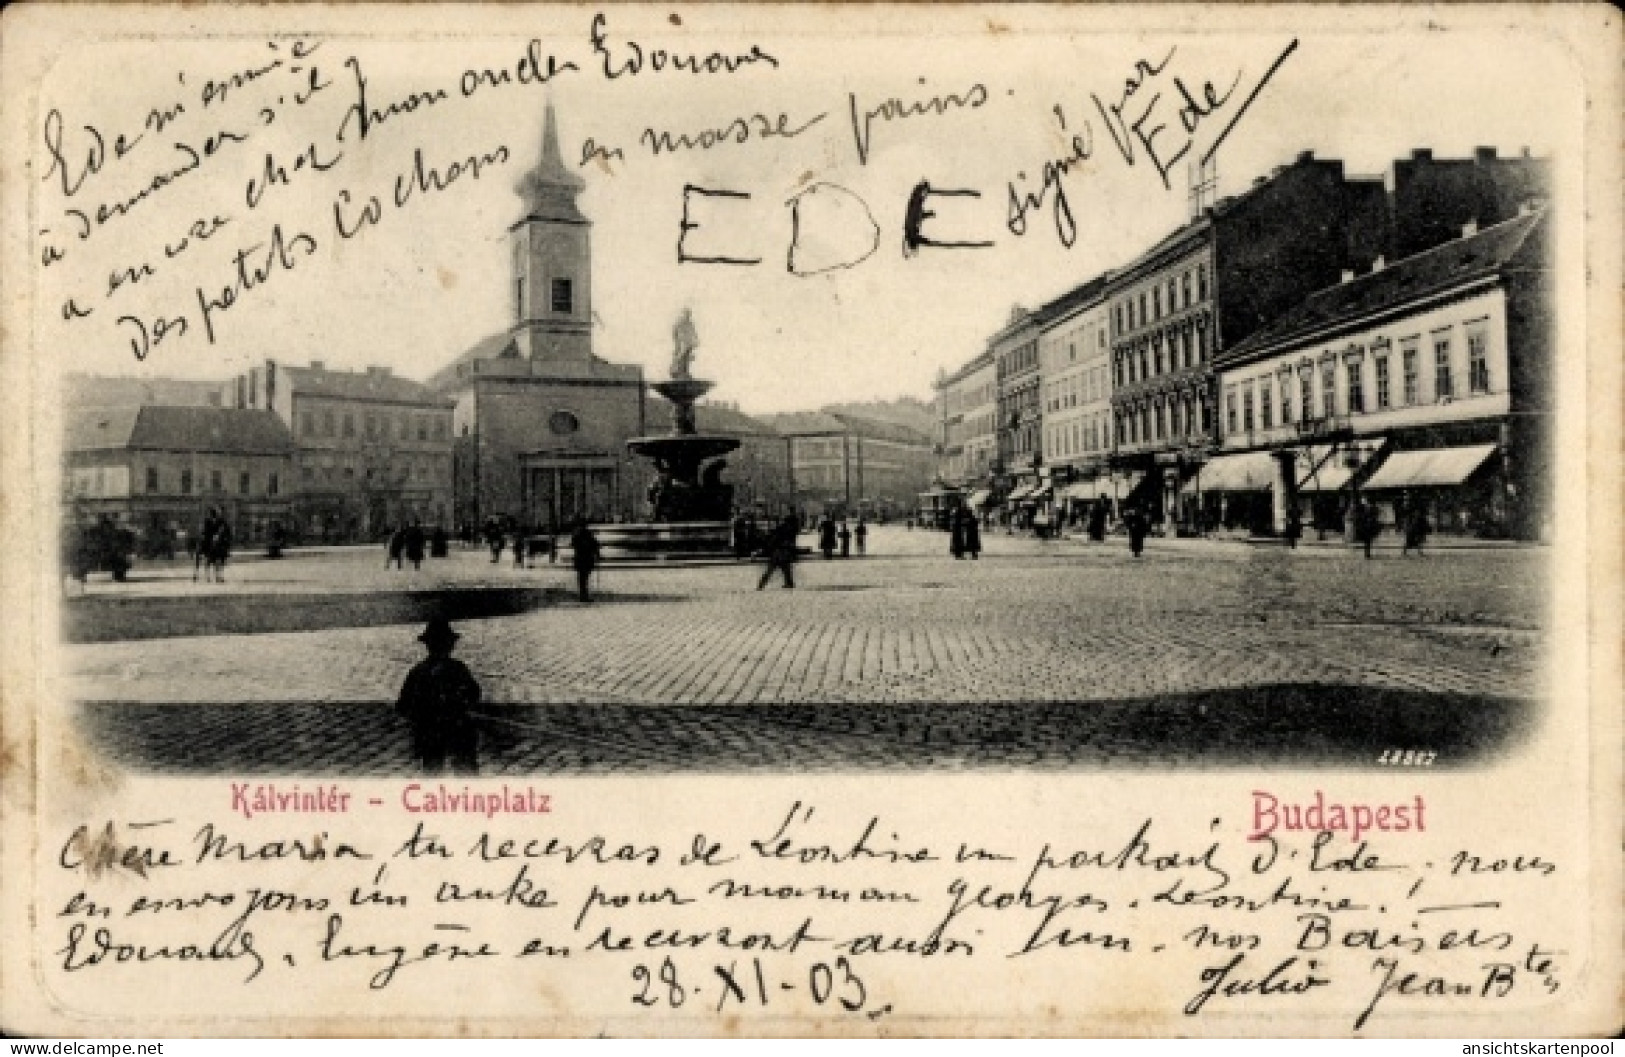 Ede m'ennuie
à demander s'il y
a encore chez mon oncle Edouard
des petits cochons en masse pains.
EDE signé par
Ede
28867
Kálvintér - Calvinplatz
Budapest
Chère Maria, tu recevras de Léontine un portrait d'Ede, nous
en envoyons un autre pour maman Georges. Léontine. -
Edouard, Eugène en recevront aussi un. nos Baisers
28. XI - 03.
Julie Jean Btes
delcampe.net
ansichtskartenpool